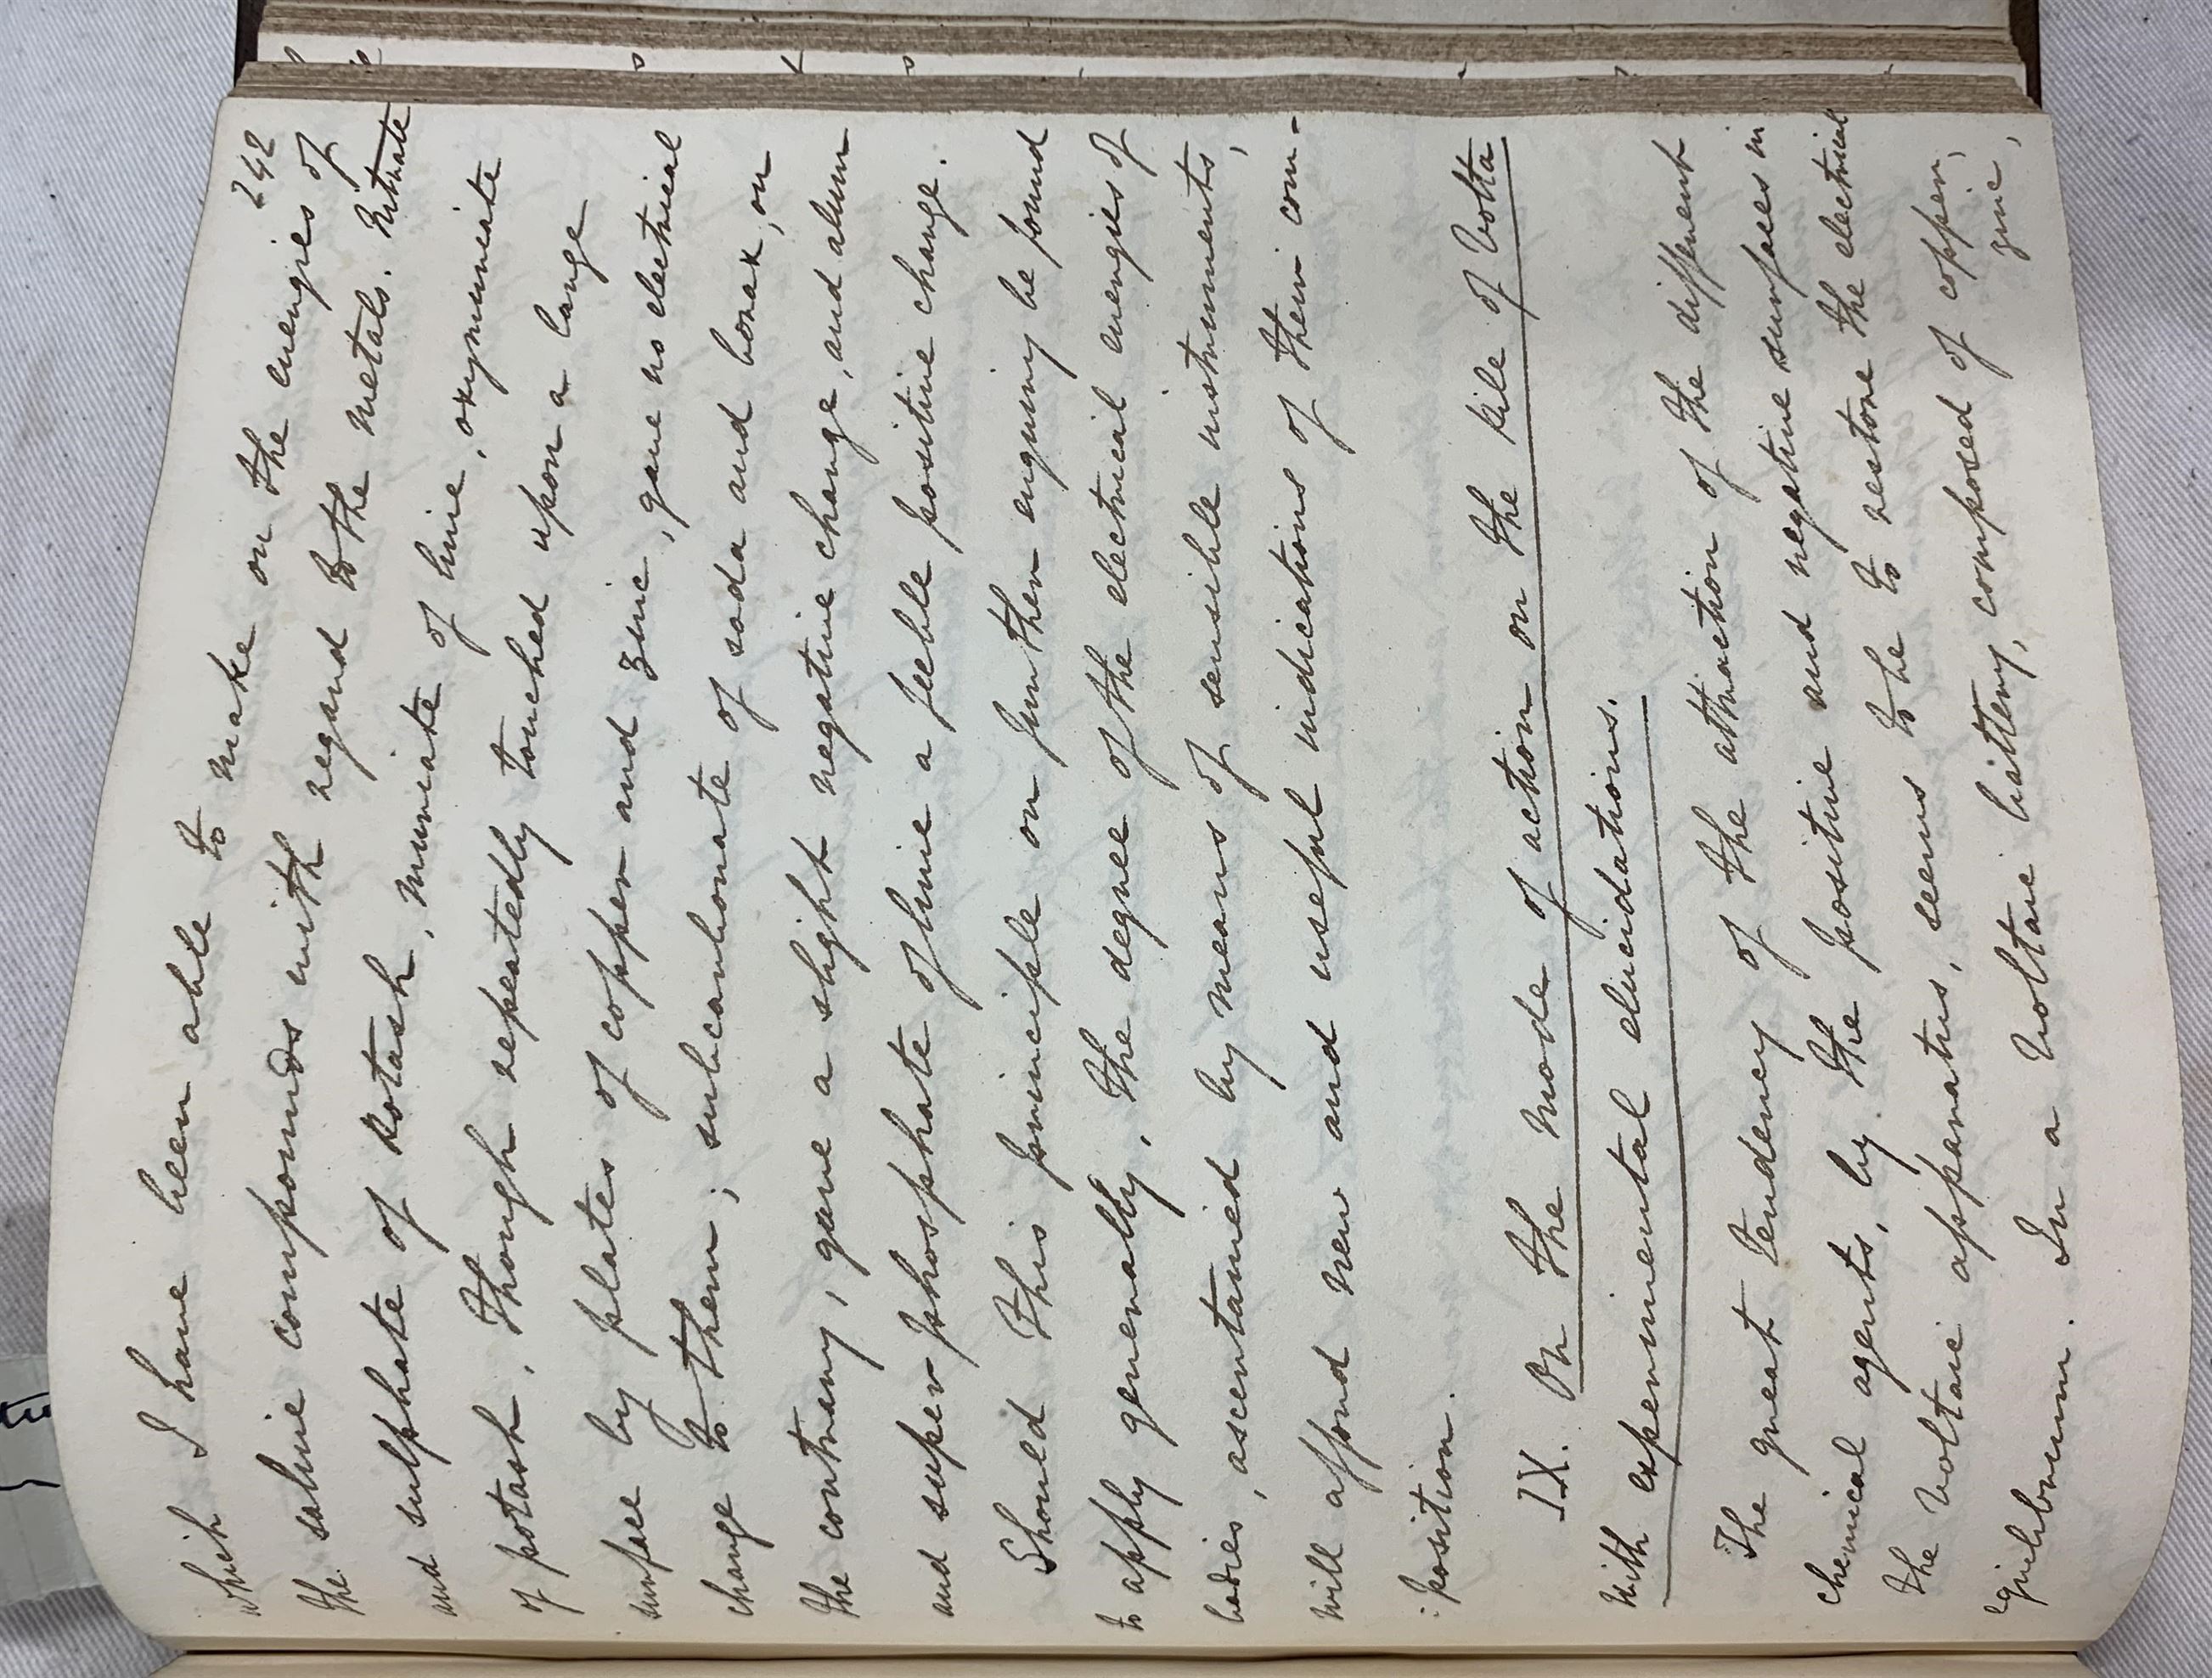 242
which I have been able to make on the energies of
the saline compounds with regard to the metals. Nitrate
and sulphate of potash, muriate of lime, oxymuriate
of potash, though repeatedly touched upon a large
surface by plates of copper and zinc, gave no electrical
change to them; subcarbonate of soda and borax, on
the contrary, gave a slight negative change, and alum
and super-phosphate of lime a feeble positive change.
Should this principle on further enquiry be found
to apply generally, the degree of the electrical energies of
bodies, ascertained by means of sensible instruments,
will afford new and useful indications of their com-
:position.
IX. On the mode of action on the pile of Volta
with experimental elucidations.
The great tendency of the attraction of the different
chemical agents, by the positive and negative surfaces in
the Voltaic apparatus, seems to be to restore the electrical
equilibrium. In a Voltaic battery, composed of copper,
zinc,